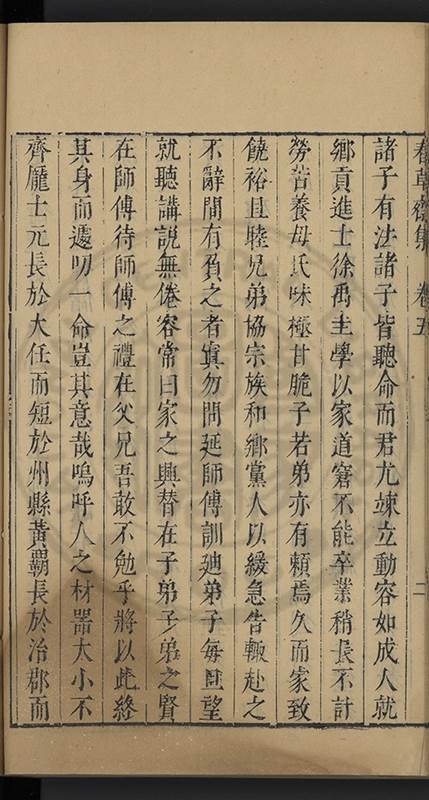 春草齋集 卷五 二
諸子有法諸子皆聽命而君尤竦立動容如成人就
鄉貢進士徐禹圭學以家道窘不能卒業稍長不計
勞苦養母氏味極甘脆子若弟亦有賴焉久而家致
饒裕且睦兄弟協宗族和鄉黨人以緩急告輒赴之
不辭間有負之者寘勿問延師傅訓廸弟子每旦望
就聽講說無倦容常曰家之興替在子弟子弟之賢
在師傅待師傅之禮在父兄吾敢不勉乎將以此終
其身而遽叨一命豈其意哉嗚呼人之材器大小不
齊龎士元長於大任而短於州縣黃覇長於治郡而